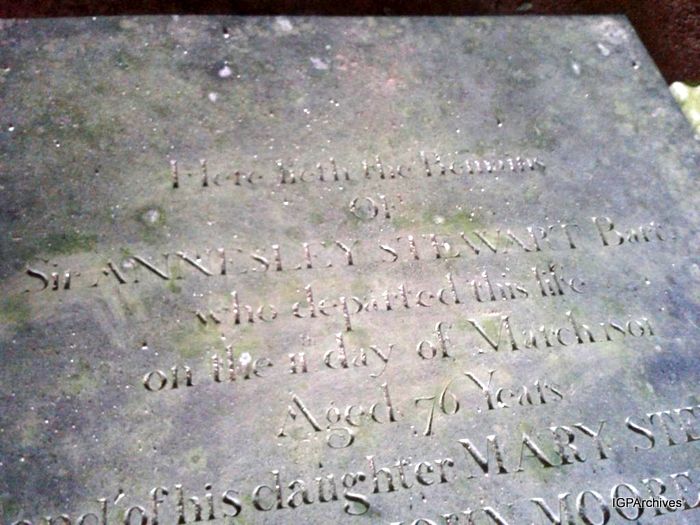 Here lieth the Remains
OF
Sir ANNESLEY STEWART Bart
who departed this life
on the 11th day of March 1801
Aged 76 Years
and of his daughter MARY STE
JOHN MOORE
IGPArchives